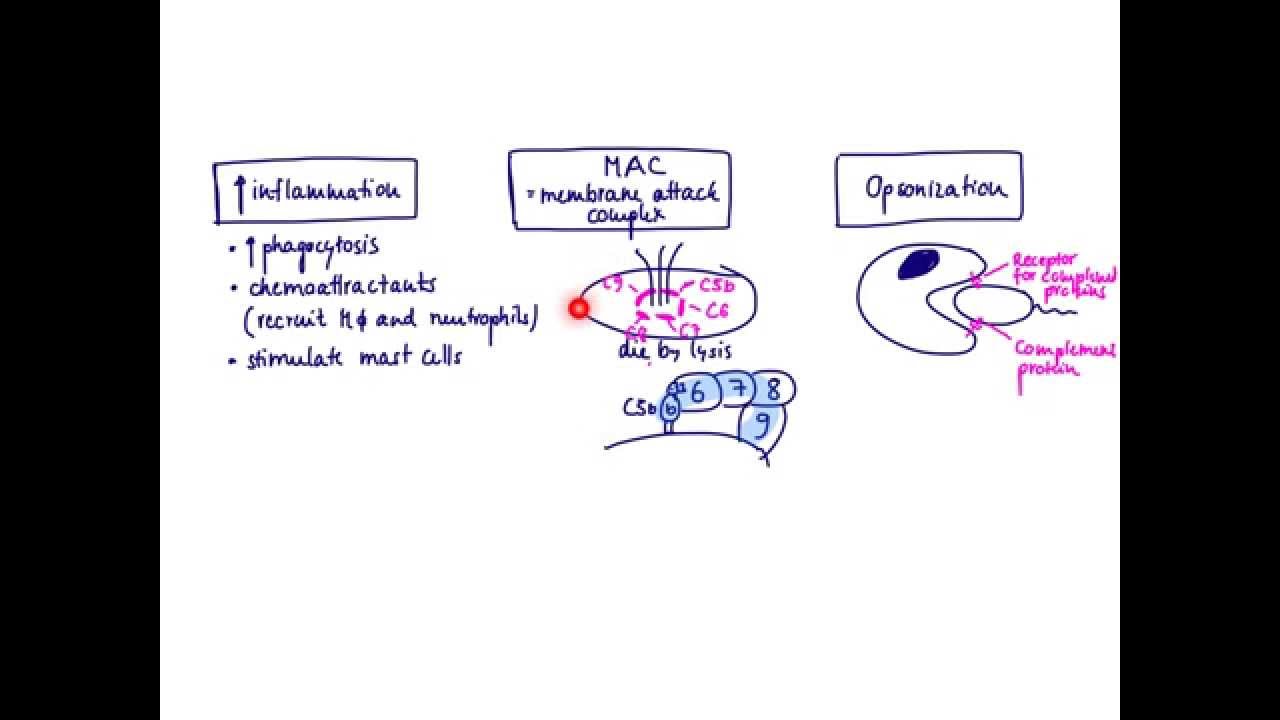 ↑ inflammation
• ↑ phagocytosis
• chemoattractants
(recruit Mϕ and neutrophils)
• stimulate mast cells
MAC
= membrane attack
complex
C9
C5b
C6
C8
C7
die by lysis
C5b
b
6
7
8
9
Opsonization
Receptor
for complement
proteins
Complement
protein